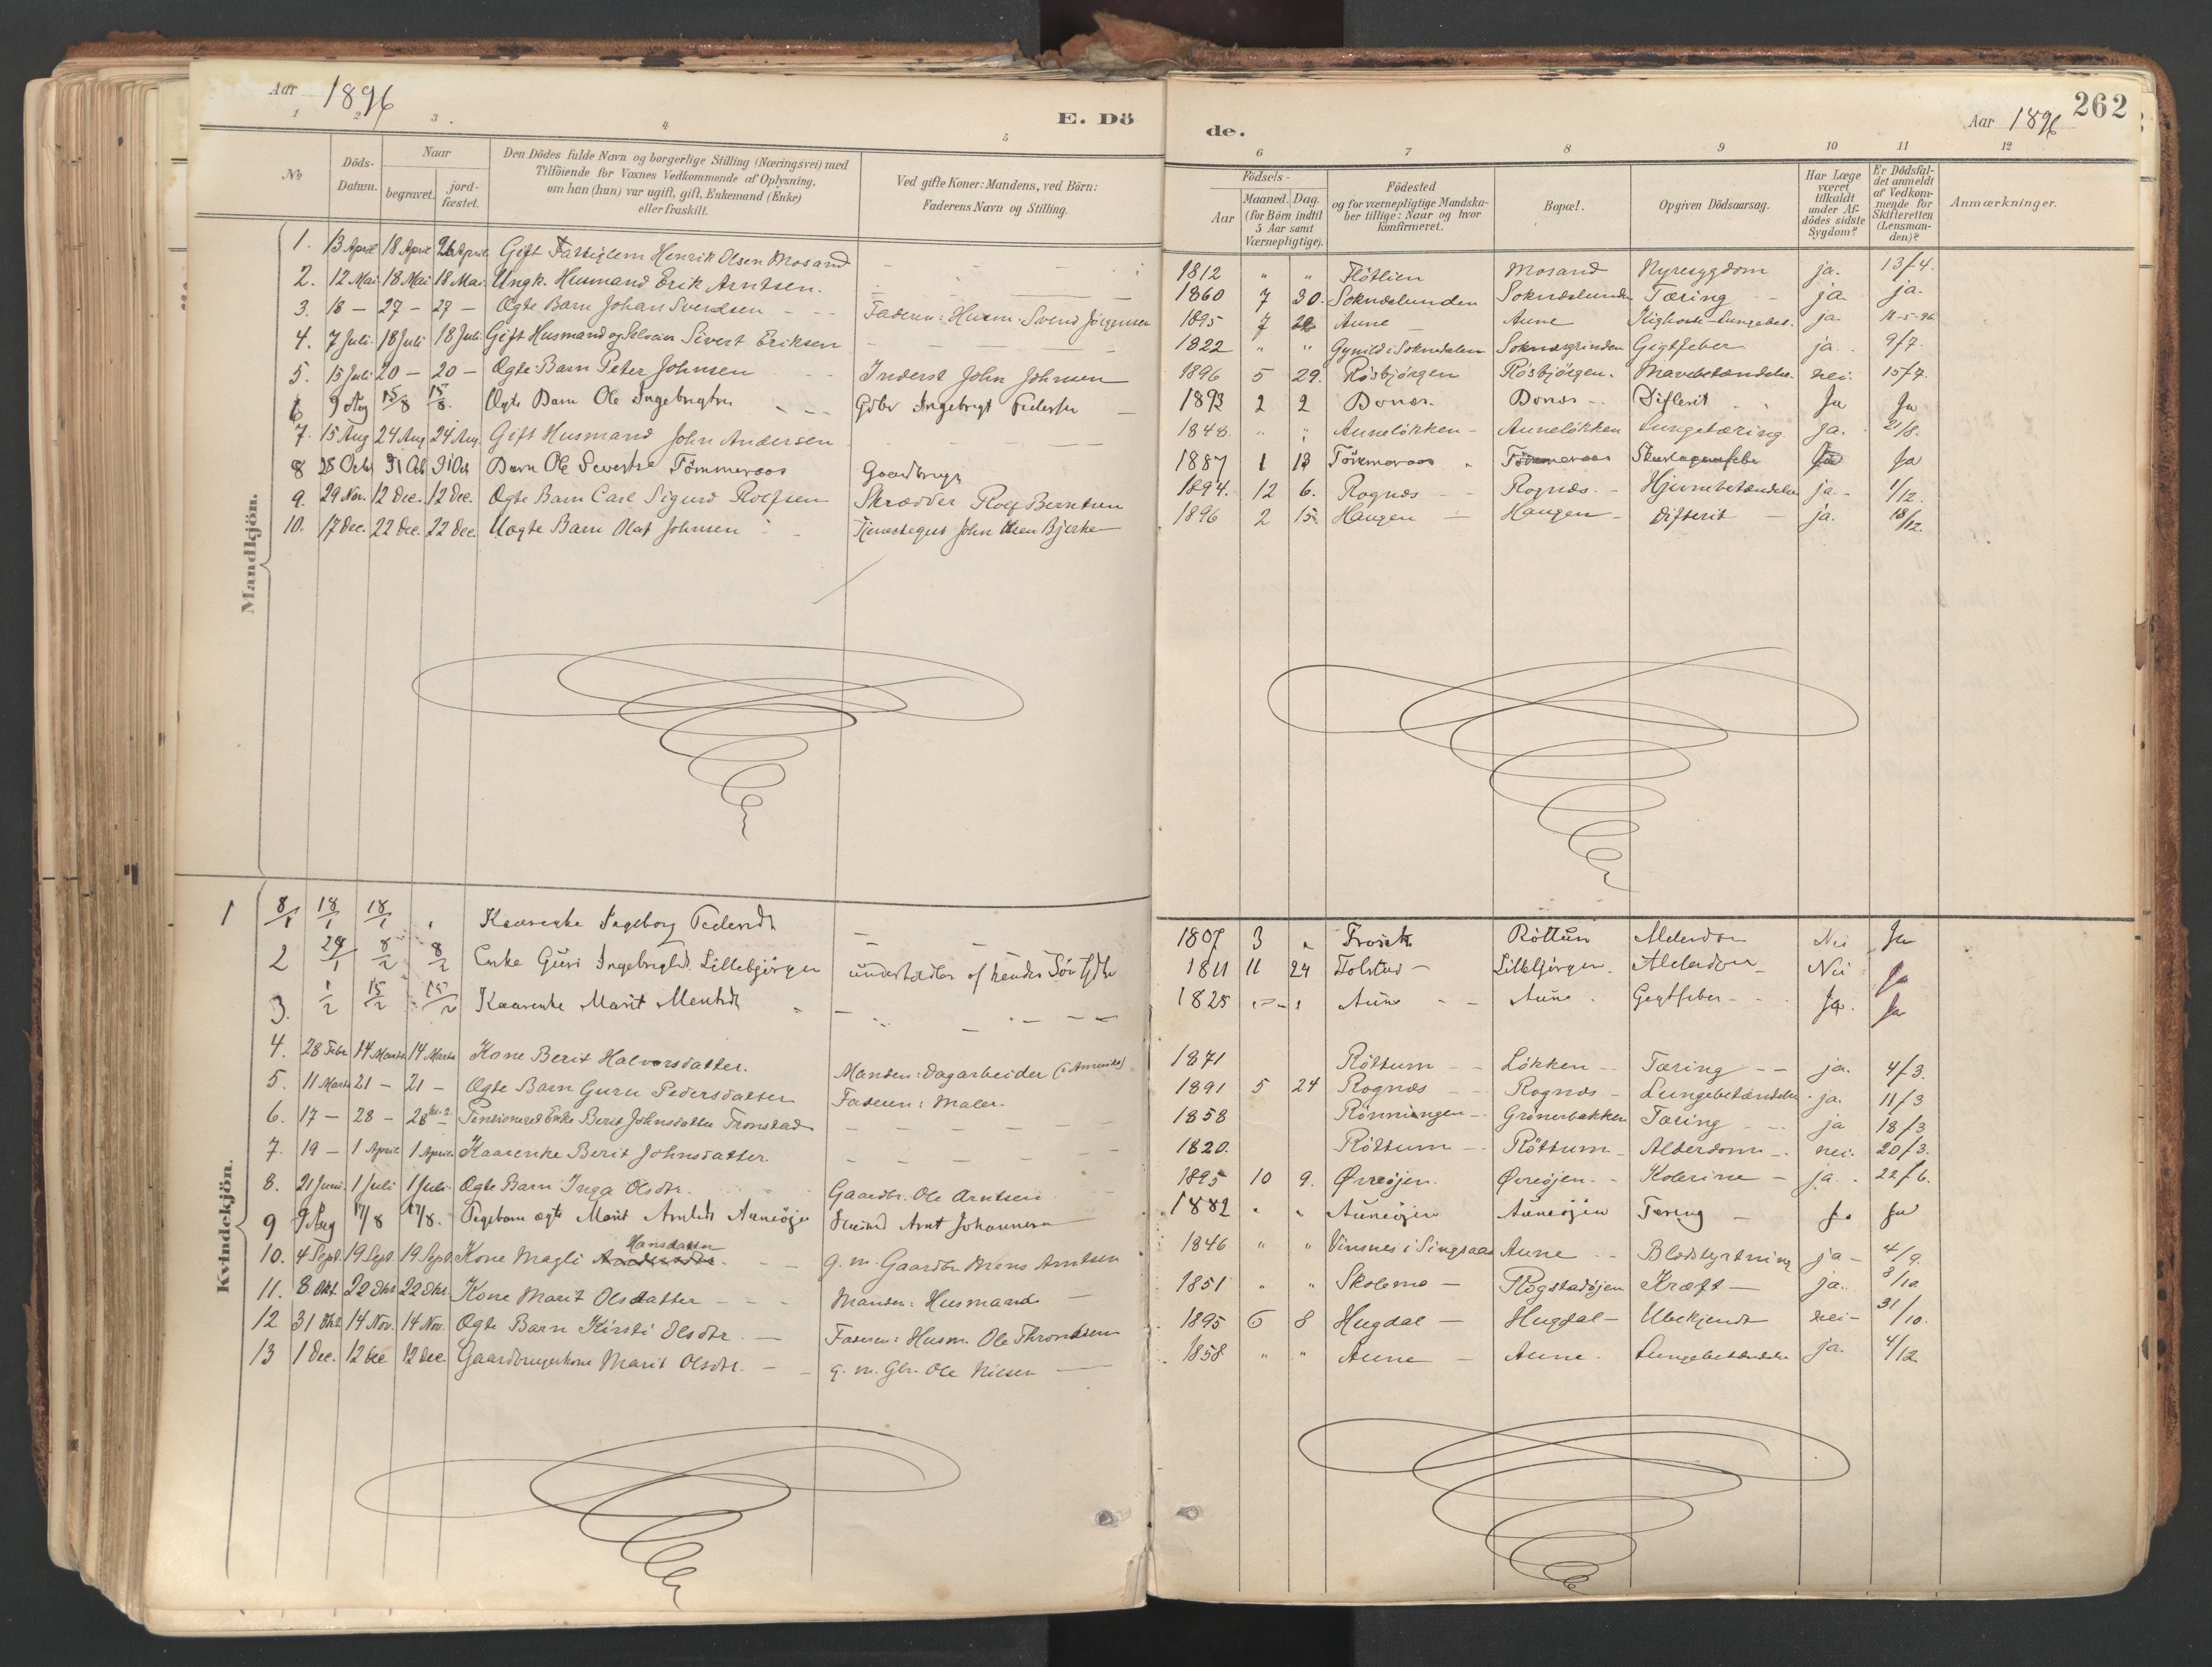 Aar 1896
E. Dö
1 2 3. 4 5
№
Döds-Datum.
Naar
begravet.
jord-fæstet.
Den Dödes fulde Navn og borgerlige Stilling (Næringsvei) med
Tilföiende for Voxnes Vedkommende af Oplysning,
om han (hun) var ugift, gift, Enkemand (Enke)
eller fraskilt.
Ved gifte Koner: Mandens, ved Börn:
Faderens Navn og Stilling.
Mandkjön.
1. 13 April 18 April 26 April Gift Fattiglem Henrik Olsen Mosand
2. 12 Mai 18 Mai 18 Mai Ungk. Husmand Erik Arntsen.
3. 18 - 27 - 27 - Ægte Barn Johan Svendsen Faderen: Husm. Svend Jörgensen
4. 7 Juli 18 Juli 18 Juli Gift Husmand og Selveier Sivert Eriksen
5. 15 Juli 20 - 20 - Ægte Barn Peter Johnsen Inderst John Johnsen
6 9 Aug 15/8 15/8. Ægte Barn Ole Ingebrigtsen Gdbr Ingebrigt Pedersen
7. 15 Aug 24 Aug 24 Aug. Gift Husmand John Andersen
8 28 Octb 31 Oct 31 Oct Barn Ole Sivertsen Tömmeraas Gaardbruger
9. 29 Nov. 12 Dec. 12 Dec. Ægte Barn Carl Sigurd Rolfsen Skrædder Rolf Berntsen
10. 17 Dec. 22 Dec. 22 Dec. Uægte Barn Olaf Johnsen Tjenestegut John Olsen Bjerke
Kvindekjön.
1 8/1 18/1 18/1 Kaarenke Ingeborg Pedersdt
2 29/1 8/2 8/2 Enke Guri Ingebrigtsd. Lillebjörgen underholdes af hendes Sön Gdbr
3. 1/2 15/2 15/2 Kaarenke Marit Mentsdt
4. 28 Febr 14 Marts 14 Marts Kone Berit Halvorsdatter. Manden: Dagarbeider (i Amerika)
5. 11 Marts 21 - 21 - Ægte Barn Guru Pedersdatter Faderen: Maler.
6. 17 - 28 - 28 - Pensioneret Enke Berit Johnsdatter Tronstad
7. 19 - 1 April 1 April Kaarenke Berit Johnsdatter.
8. 21 Juni 1 Juli 1 Juli Ægte Barn Inga Olsdtr. Gaardbr. Ole Arntsen
9 9 Aug 17/8 17/8. Pigebarn ægte Marit Arntsdt Auneöjen Husmd Arnt Johannesen
10. 4 Sept. 19 Sept. 19 Sept. Kone Magli Hansdatter g. m. Gaardbr. Mons Arntsen
11. 8. Okt. 22 Okt 22 Okt. Kone Marit Olsdatter Manden: Husmand
12 31 Okt 14 Nov. 14 Nov. Ægte Barn Kirsti Olsdtr. Faderen: Husm. Ole Throndsen
13 1 Dec. 12 Dec 12 Dec. Gaardbrugerkone Marit Olsdtr. g. m. Gbr. Ole Nilsen
de.
Aar 1896 262
6 7 8 9 10 11 12
Födsels-
Aar
Maaned. Dag.
(for Börn indtil
5 Aar samt
Værnepligtige).
Födested
og for værnepligtige Mandska-
ber tillige: Naar og hvor
konfirmeret.
Bopæl.
Opgiven Dödsaarsag.
Har Læge
været
tilkaldt
under Af-
dödes sidste
Sygdom?
Er Dödsfal-
det anmeldt
af Vedkom-
mende for
Skifteretten
(Lensman-
den)?
Anmærkninger.
1812 " " Flötlien Mosand Nyresygdom ja. 13/4.
1860 7 30. Soknæslunden Soknæslunden Tæring ja ja.
1895 7 22 Aune Aune Kighoste-Lungebet. ja 11-5-96
1822 " " Gynild i Soknedalen Soknæsgrinden Gigtfeber ja. 9/7.
1896 5 29. Rösbjörgen Rösbjörgen. Mavebetændelse. nei. 15/7.
1893 2 2 Bonæs. Bonæs Difterit Ja Ja
1848. " " Auneløkken Auneløkken Lungetæring ja. 21/8.
1887 1 13 Tömmeraas Tömmeraas Skarlagensfeber Ja Ja
1894. 12 6. Rognæs Rognæs. Hjernebetændelse ja. 1/12.
1896 2 15. Haugen Haugen Difterit ja. 18/12.
1807 3 " Röttum Alderdom Nei Ja
1811 11 24 Tolstad Lillebjörgen. Alderdom Nei Ja
1825 Aune Aune Gigtfeber Ja. Ja
1871 Röttum Lökken Tæring ja. 4/3.
1891 5 24 Rognæs Rognæs Lungebetændelse ja. 11/3
1858 Rönningen Grönerbakken Tæring ja 18/3
1820. Röttum Röttum Alderdom nei. 20/3.
1895 10 9. Øvreöjen. Øvreöjen. Kolerine ja. 22/6.
1882 " " Auneöjen Auneöjen Tæring Ja Ja
1846 " " Vinsnes i Singsaas Aune Blodstyrtning ja 4/9.
1851 " " Skolemo Rogstadöjen Kræft ja. 8/10
1895 6 8 Hugdal Hugdal Ubekjendt nei 31/10.
1858 " " Aune Aune. Lungebetændelse ja. 4/12